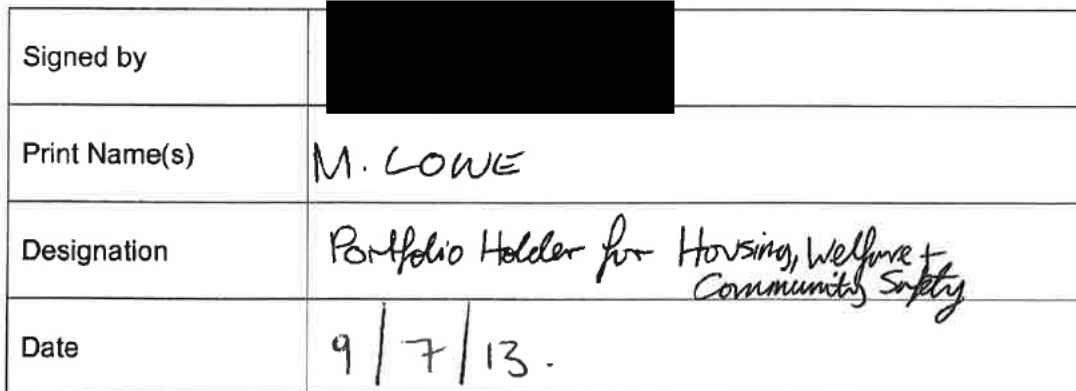 Signed by
Print Name(s) M. LOWE
Designation Portfolio Holder for Housing, Welfare +
Community Safety
Date 9/7/13.